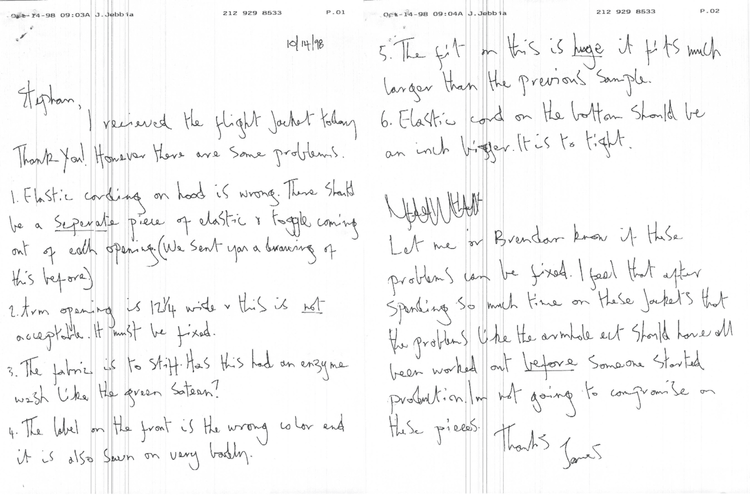 Oct-14-98 09:03A J.Jebbia 212 929 8533 P.01
10/14/98
Stephan,
I recieved the flight Jacket today
Thank You! However there are some problems.
1. Elastic cording on hood is wrong. There should
be a separate piece of elastic & toggle coming
out of each opening (We sent you a drawing of
this before)
2. Arm opening is 12 1/4 wide & this is not
acceptable. It must be fixed.
3. The fabric is to stiff. Has this had an enzyme
wash like the green sateen?
4. The label on the front is the wrong color and
it is also sewn on very badly.
Oct-14-98 09:04A J.Jebbia 212 929 8533 P.02
5. The fit on this is huge it fits much
larger than the previous sample.
6. Elastic cord on the bottom should be
an inch bigger. It is to tight.
Let me or Brendan know if these
problems can be fixed. I feel that after
spending so much time on these Jackets that
the problems like the armhole ect should have all
been worked out before someone started
production. I'm not going to compromise on
these pieces.
Thanks
James